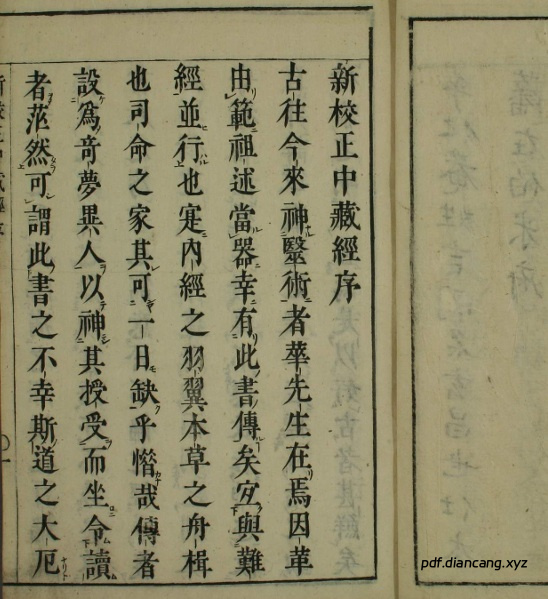 新校正中藏經序
古往今來神醫術者華先生在焉因革
由範祖述當器幸有此書傳矣宜與難
經並行也寔內經之羽翼本草之舟楫
也司命之家其可一日缺乎惜哉傳者
設爲竒夢異人以神其授受而坐令讀
者茫然可謂此書之不幸斯道之大厄
pdf.diancang.xyz